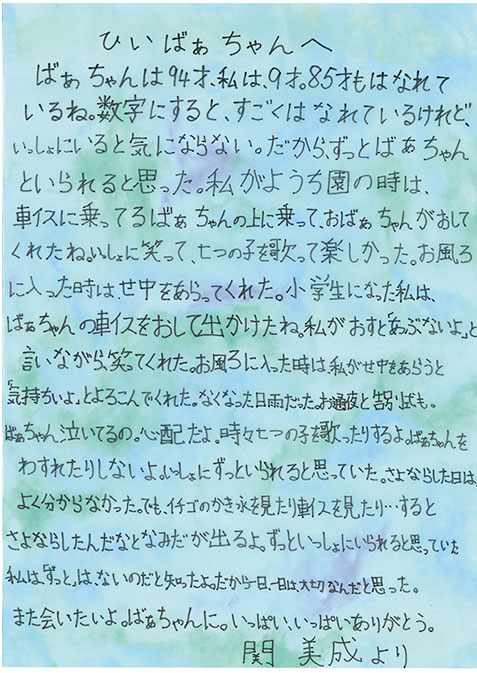 ひいばぁちゃんへ
ばぁちゃんは94才、私は、9才。85才もはなれて
いるね。数字にすると、すごくはなれているけれど、
いっしょにいると気にならない。だから、ずっとばぁちゃん
といられると思った。私がようち園の時は、
車イスに乗ってるばぁちゃんの上に乗って、おばぁちゃんがおして
くれたね。いっしょに笑って、七つの子を歌って楽しかった。お風ろ
に入った時は、せ中をあらってくれた。小学生になった私は、
ばぁちゃんの車イスをおして出かけたね。私がおすと「あぶないよ」と
言いながら、笑ってくれた。お風ろに入った時は私がせ中をあらうと
「気持ちいよ」とよろこんでくれた。なくなった日雨だった。お通夜と告別し式も。
ばぁちゃん泣いてるの。心配だよ。時々七つの子を歌ったりするよ。ばぁちゃんを
わすれたりしないよ。いっしょにずっといられると思っていた。さよならした日は、
よく分からなかった。でも、イチゴのかき氷を見たり車イスを見たり…すると
さよならしたんだなとなみだが出るよ。ずっといっしょにいられると思っていた
私は、「ずっと」は、ないのだと知ったよ。だから一日、一日は大切なんだと思った。
また会いたいよ。ばぁちゃんに。いっぱい、いっぱいありがとう。
関 美成より